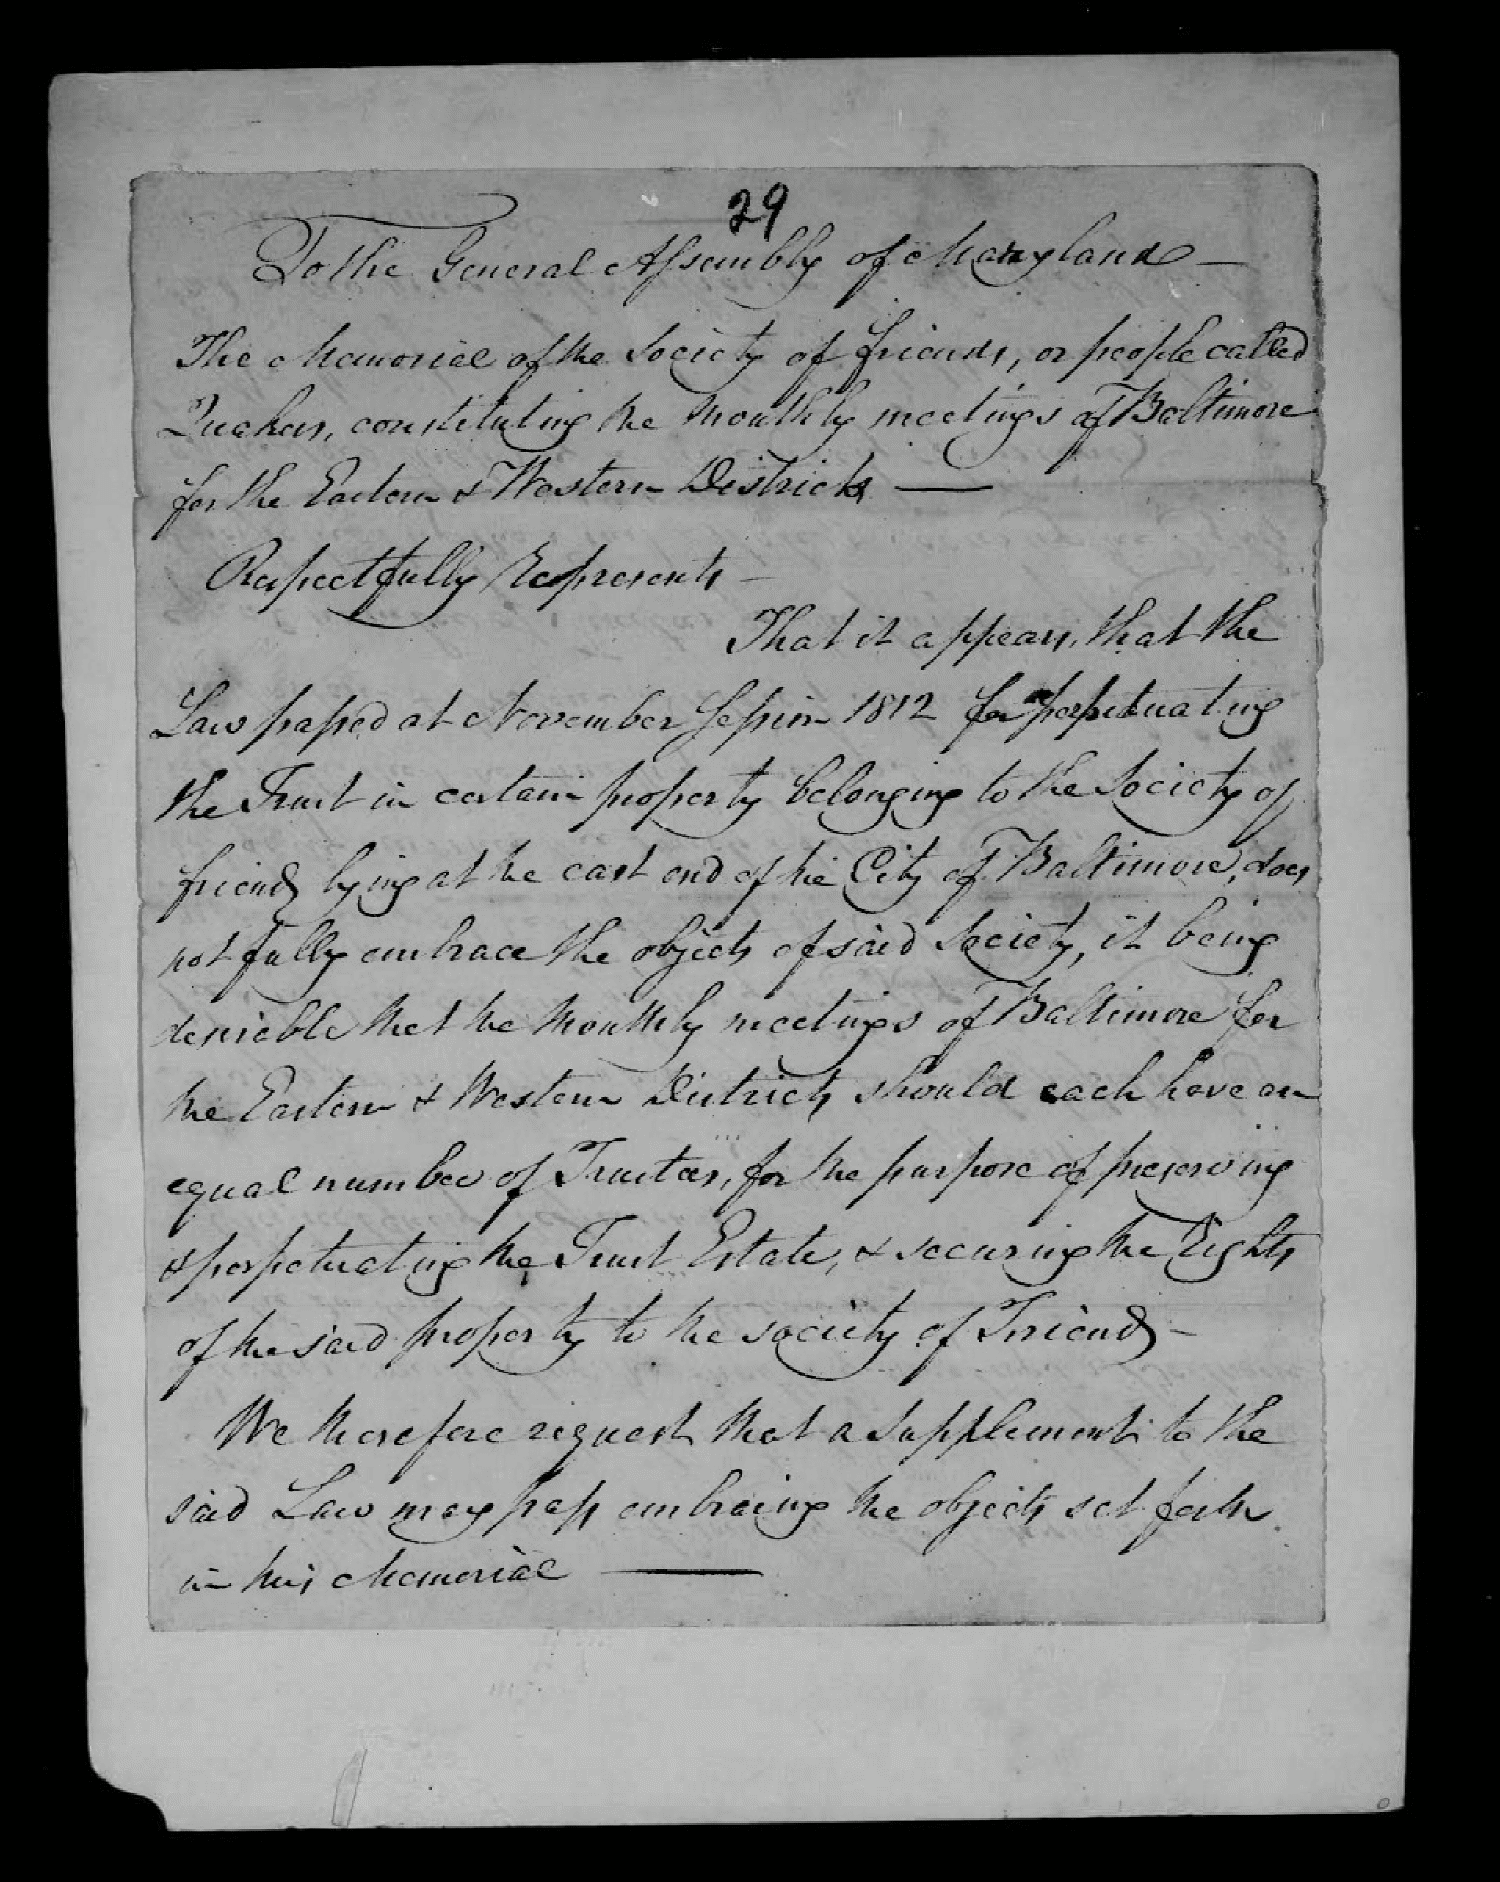 29
To the General Assembly of Maryland —
The Memorial of the Society of friends, or people called
Quakers, constituting the Monthly meetings of Baltimore
for the Eastern & Western Districts —
Respectfully Represents —
That it appears, that the
Law passed at November Session 1812 for perpetuating
the Trust in certain property belonging to the Society of
friends lying at the east end of the City of Baltimore, does
not fully embrace the objects of said Society, it being
desirable that the Monthly meetings of Baltimore for
the Eastern & Western Districts should each have an
equal number of Trustees, for the purpose of preserving
& perpetuating the Trust Estate, & securing the Rights
of the said property to the society of Friends —
We therefore request that a supplement to the
said Law may pass embracing the objects set forth
in this Memorial —